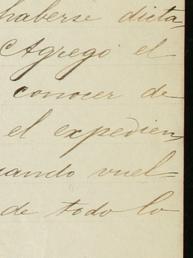 haberse dicta-
Agregó el
conocer de
el expedien
uando vuel-
de todo lo